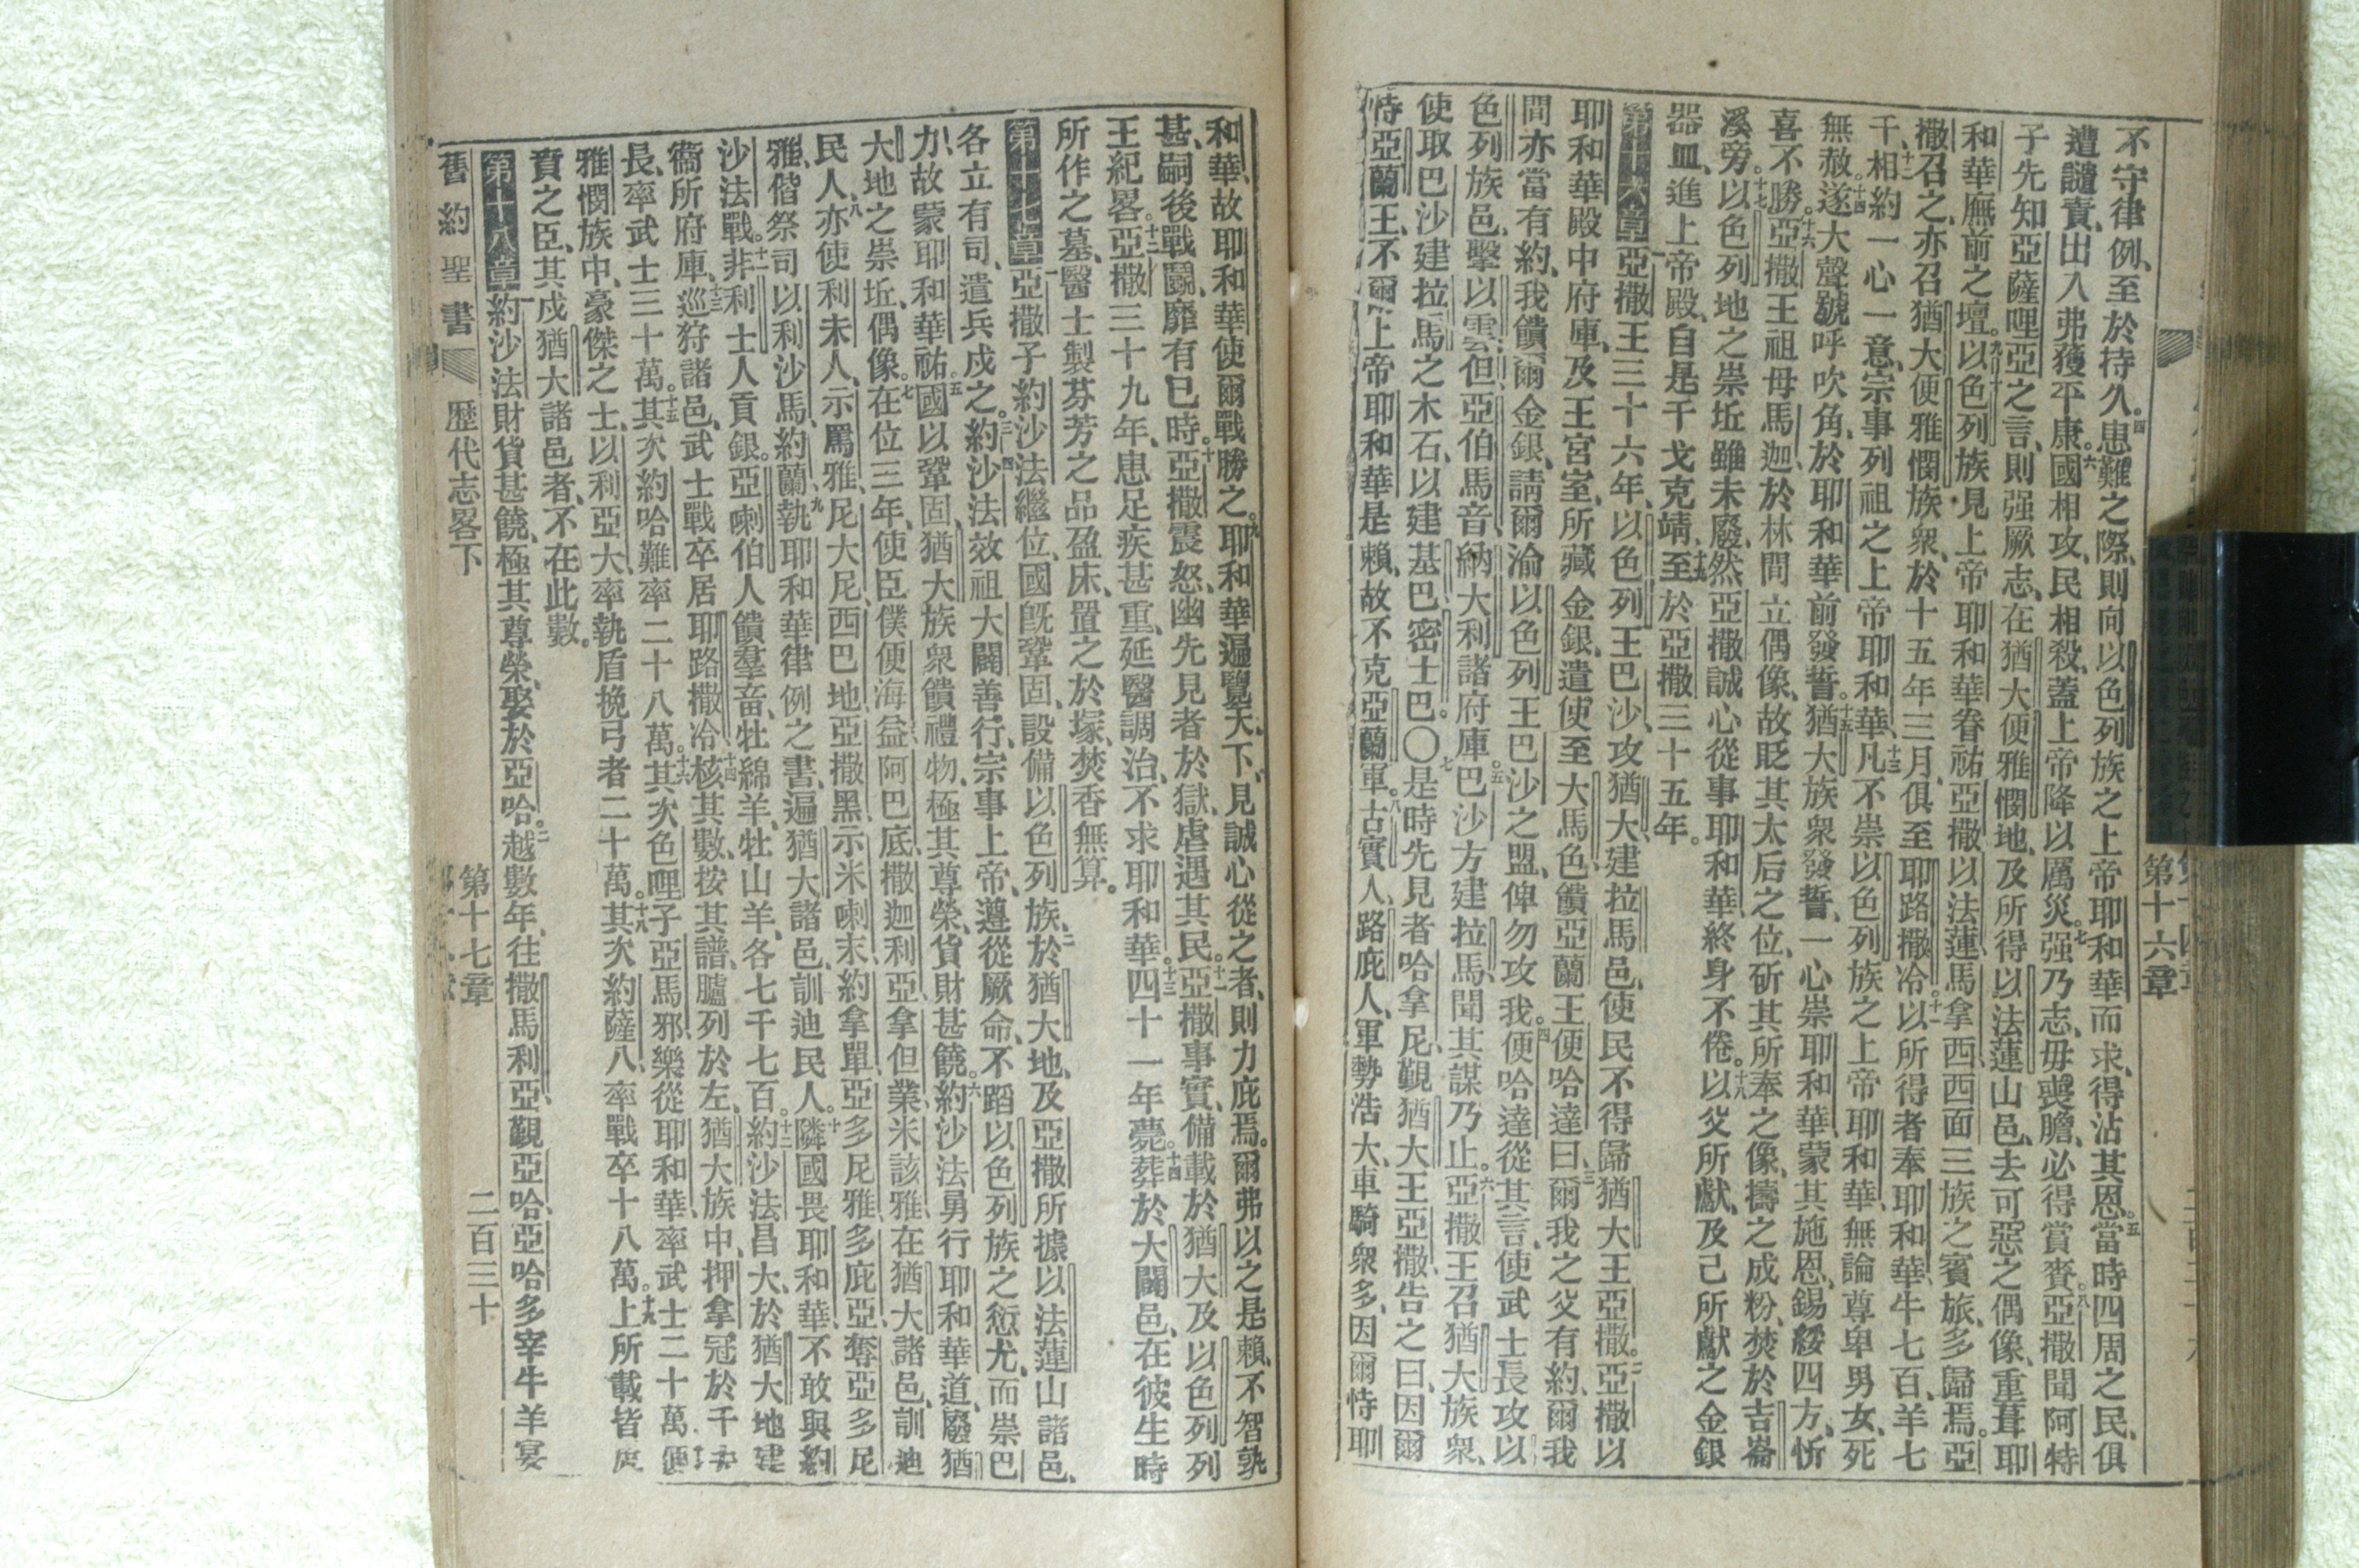 不守律例、至於持久。四患難之際、則向以色列族之上帝耶和華而求、得沾其恩。五當時四周之民、俱
遭譴責、出入弗獲平康。六國相攻、民相殺、蓋上帝降以厲災。七强乃志、毋喪膽、必得賞賚。八亞撒聞阿特
子先知亞薩哩亞之言、則强厥志、在猶大便雅憫地、及所得以法蓮山邑、去可惡之偶像、重葺耶
和華廡前之壇。九以色列族見上帝耶和華眷祐亞撒以法蓮馬拿西西面三族之賓旅、多歸焉。亞
撒召之、亦召猶大便雅憫族衆、於十五年三月、俱至耶路撒冷。十一以所得者奉耶和華、牛七百、羊七
千、十二相約一心一意、宗事列祖之上帝耶和華、十三凡不崇以色列族之上帝耶和華、無論尊卑男女、死
無赦。十四遂大聲號呼吹角、於耶和華前發誓。十五猶大族衆發誓、一心崇耶和華、蒙其施恩、錫綏四方、忻
喜不勝。十六亞撒王祖母馬迦於林間立偶像、故貶其太后之位、斫其所奉之像、擣之成粉、焚於吉崙
溪旁。十七以色列地之崇坵雖未廢、然亞撒誠心從事耶和華、終身不倦。十八以父所獻、及己所獻之金銀
器皿、進上帝殿、自是干戈克靖、十九至於亞撒三十五年。
第十六章 一亞撒王三十六年、以色列王巴沙、攻猶大、建拉馬邑、使民不得歸猶大王亞撒。二亞撒以
耶和華殿中府庫、及王宮室、所藏金銀、遣使至大馬色饋亞蘭王便哈達曰、三爾我之父有約、爾我
間亦當有約、我饋爾金銀、請爾渝以色列王巴沙之盟、俾勿攻我。四便哈達從其言、使武士長攻以
色列族邑、擊以雲、但、亞伯馬音、納大利諸府庫。五巴沙方建拉馬、聞其謀乃止。六亞撒王召猶大族衆、
使取巴沙建拉馬之木石、以建基巴密士巴。〇七是時先見者哈拿尼、覲猶大王亞撒、告之曰、因爾
恃亞蘭王、不爾上帝耶和華是賴、故不克亞蘭軍。八古實人、路庇人、軍勢浩大、車騎衆多、因爾恃耶
第十六章
和華、故耶和華使爾戰勝之。九耶和華遍覽天下、見誠心從之者、則力庇焉。爾弗以之是賴、不智孰
甚、嗣後戰鬬、靡有已時。十亞撒震怒、幽先見者於獄、虐遇其民。十一亞撒事實、備載於猶大及以色列列
王紀畧。十二亞撒三十九年、患足疾甚重、延醫調治、不求耶和華。十三四十一年薨。十四葬於大闢邑、在彼生時
所作之墓、醫士製芬芳之品盈床、置之於塚、焚香無算。
第十七章 一亞撒子約沙法繼位、國旣鞏固、設備以色列族、二於猶大地、及亞撒所據以法蓮山諸邑、
各立有司、遣兵戍之。三約沙法效祖大闢善行、四宗事上帝、遵從厥命、不蹈以色列族之愆尤、而崇巴
力、故蒙耶和華祐。五國以鞏固、猶大族衆饋禮物、極其尊榮、貨財甚饒。六約沙法勇行耶和華道、廢猶
大地之崇坵、偶像。七在位三年、使臣僕便海益、阿巴底、撒迦利亞、拿但業、米該雅、在猶大諸邑、訓迪
民人、八亦使利未人、示罵雅、尼大尼、西巴地亞、撒黑示米喇末、約拿單、亞多尼雅、多庇亞、奪亞多尼
雅、偕祭司以利沙馬、約蘭、九執耶和華律例之書、遍猶大諸邑、訓迪民人。十隣國畏耶和華、不敢與約
沙法戰。十一非利士人貢銀。亞喇伯人饋羣畜、牡綿羊、牡山羊、各七千七百。十二約沙法昌大、於猶大地建
衞所府庫、十三巡狩諸邑、武士戰卒居耶路撒冷、十四核其數、按其譜臚列於左、猶大族中、押拿冠於千夫
長、率武士三十萬。十五其次約哈難率二十八萬。十六其次色哩子亞馬邪、樂從耶和華、率武士二十萬、便
雅憫族中、豪傑之士、以利亞大、率執盾挽弓者二十萬。十八其次約薩八、率戰卒十八萬。十九上所載皆
賁之臣、其戍猶大諸邑者、不在此數。
第十八章 一約沙法財貨甚饒、極其尊榮、娶於亞哈。二越數年、往撒馬利亞覲亞哈、亞哈多宰牛羊宴
舊約聖書 歷代志畧下 第十七章 二百三十